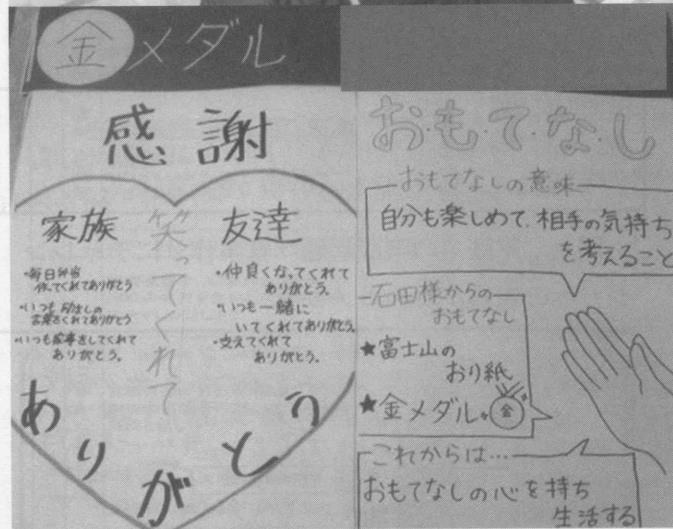 金メダル
感謝
家族
・毎日弁当
作ってくれてありがとう
・いつも励ましの
言葉をくれてありがとう
・いつも家事をしてくれて
ありがとう。
笑ってくれて
友達
・仲良くなってくれて
ありがとう。
・いつも一緒に
いてくれてありがとう。
・支えてくれて
ありがとう。
ありがとう
お・も・て・な・し
おもてなしの意味
自分も楽しめて、相手の気持ち
を考えること
石田様からの
おもてなし
★富士山の
おり紙
★金メダル
金
これからは…
おもてなしの心を持ち
生活する